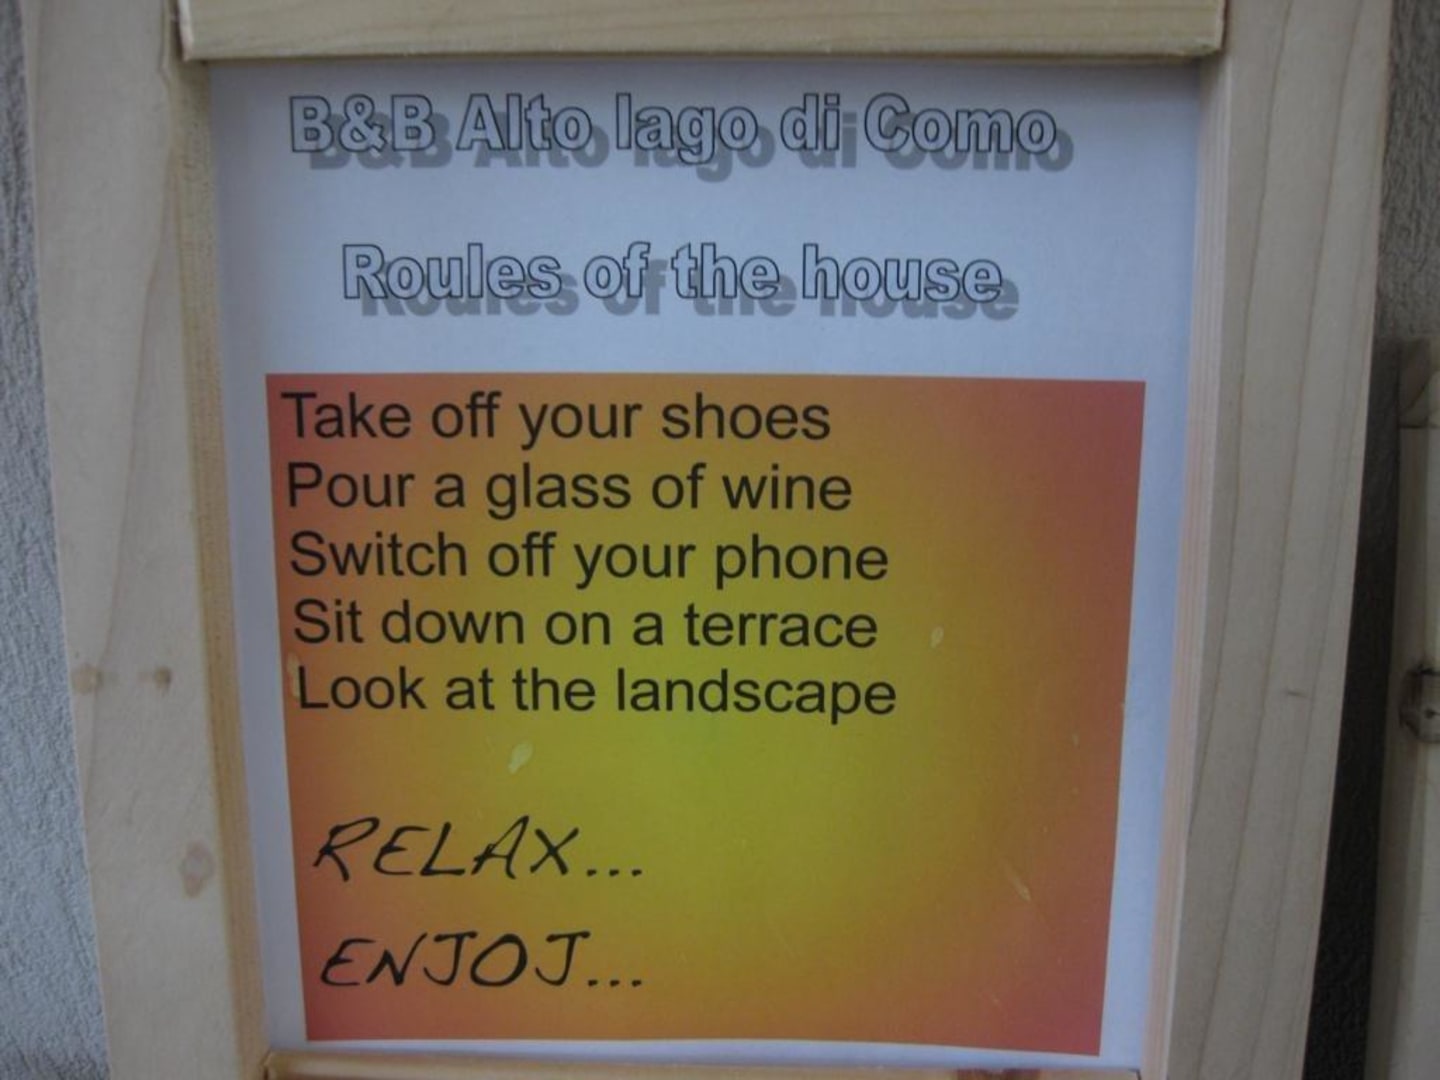 B&B Alto lago di Como
Roules of the house
Take off your shoes
Pour a glass of wine
Switch off your phone
Sit down on a terrace
Look at the landscape
RELAX...
ENJOJ...